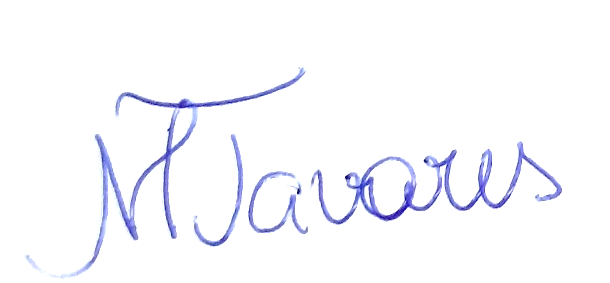 M Tavares